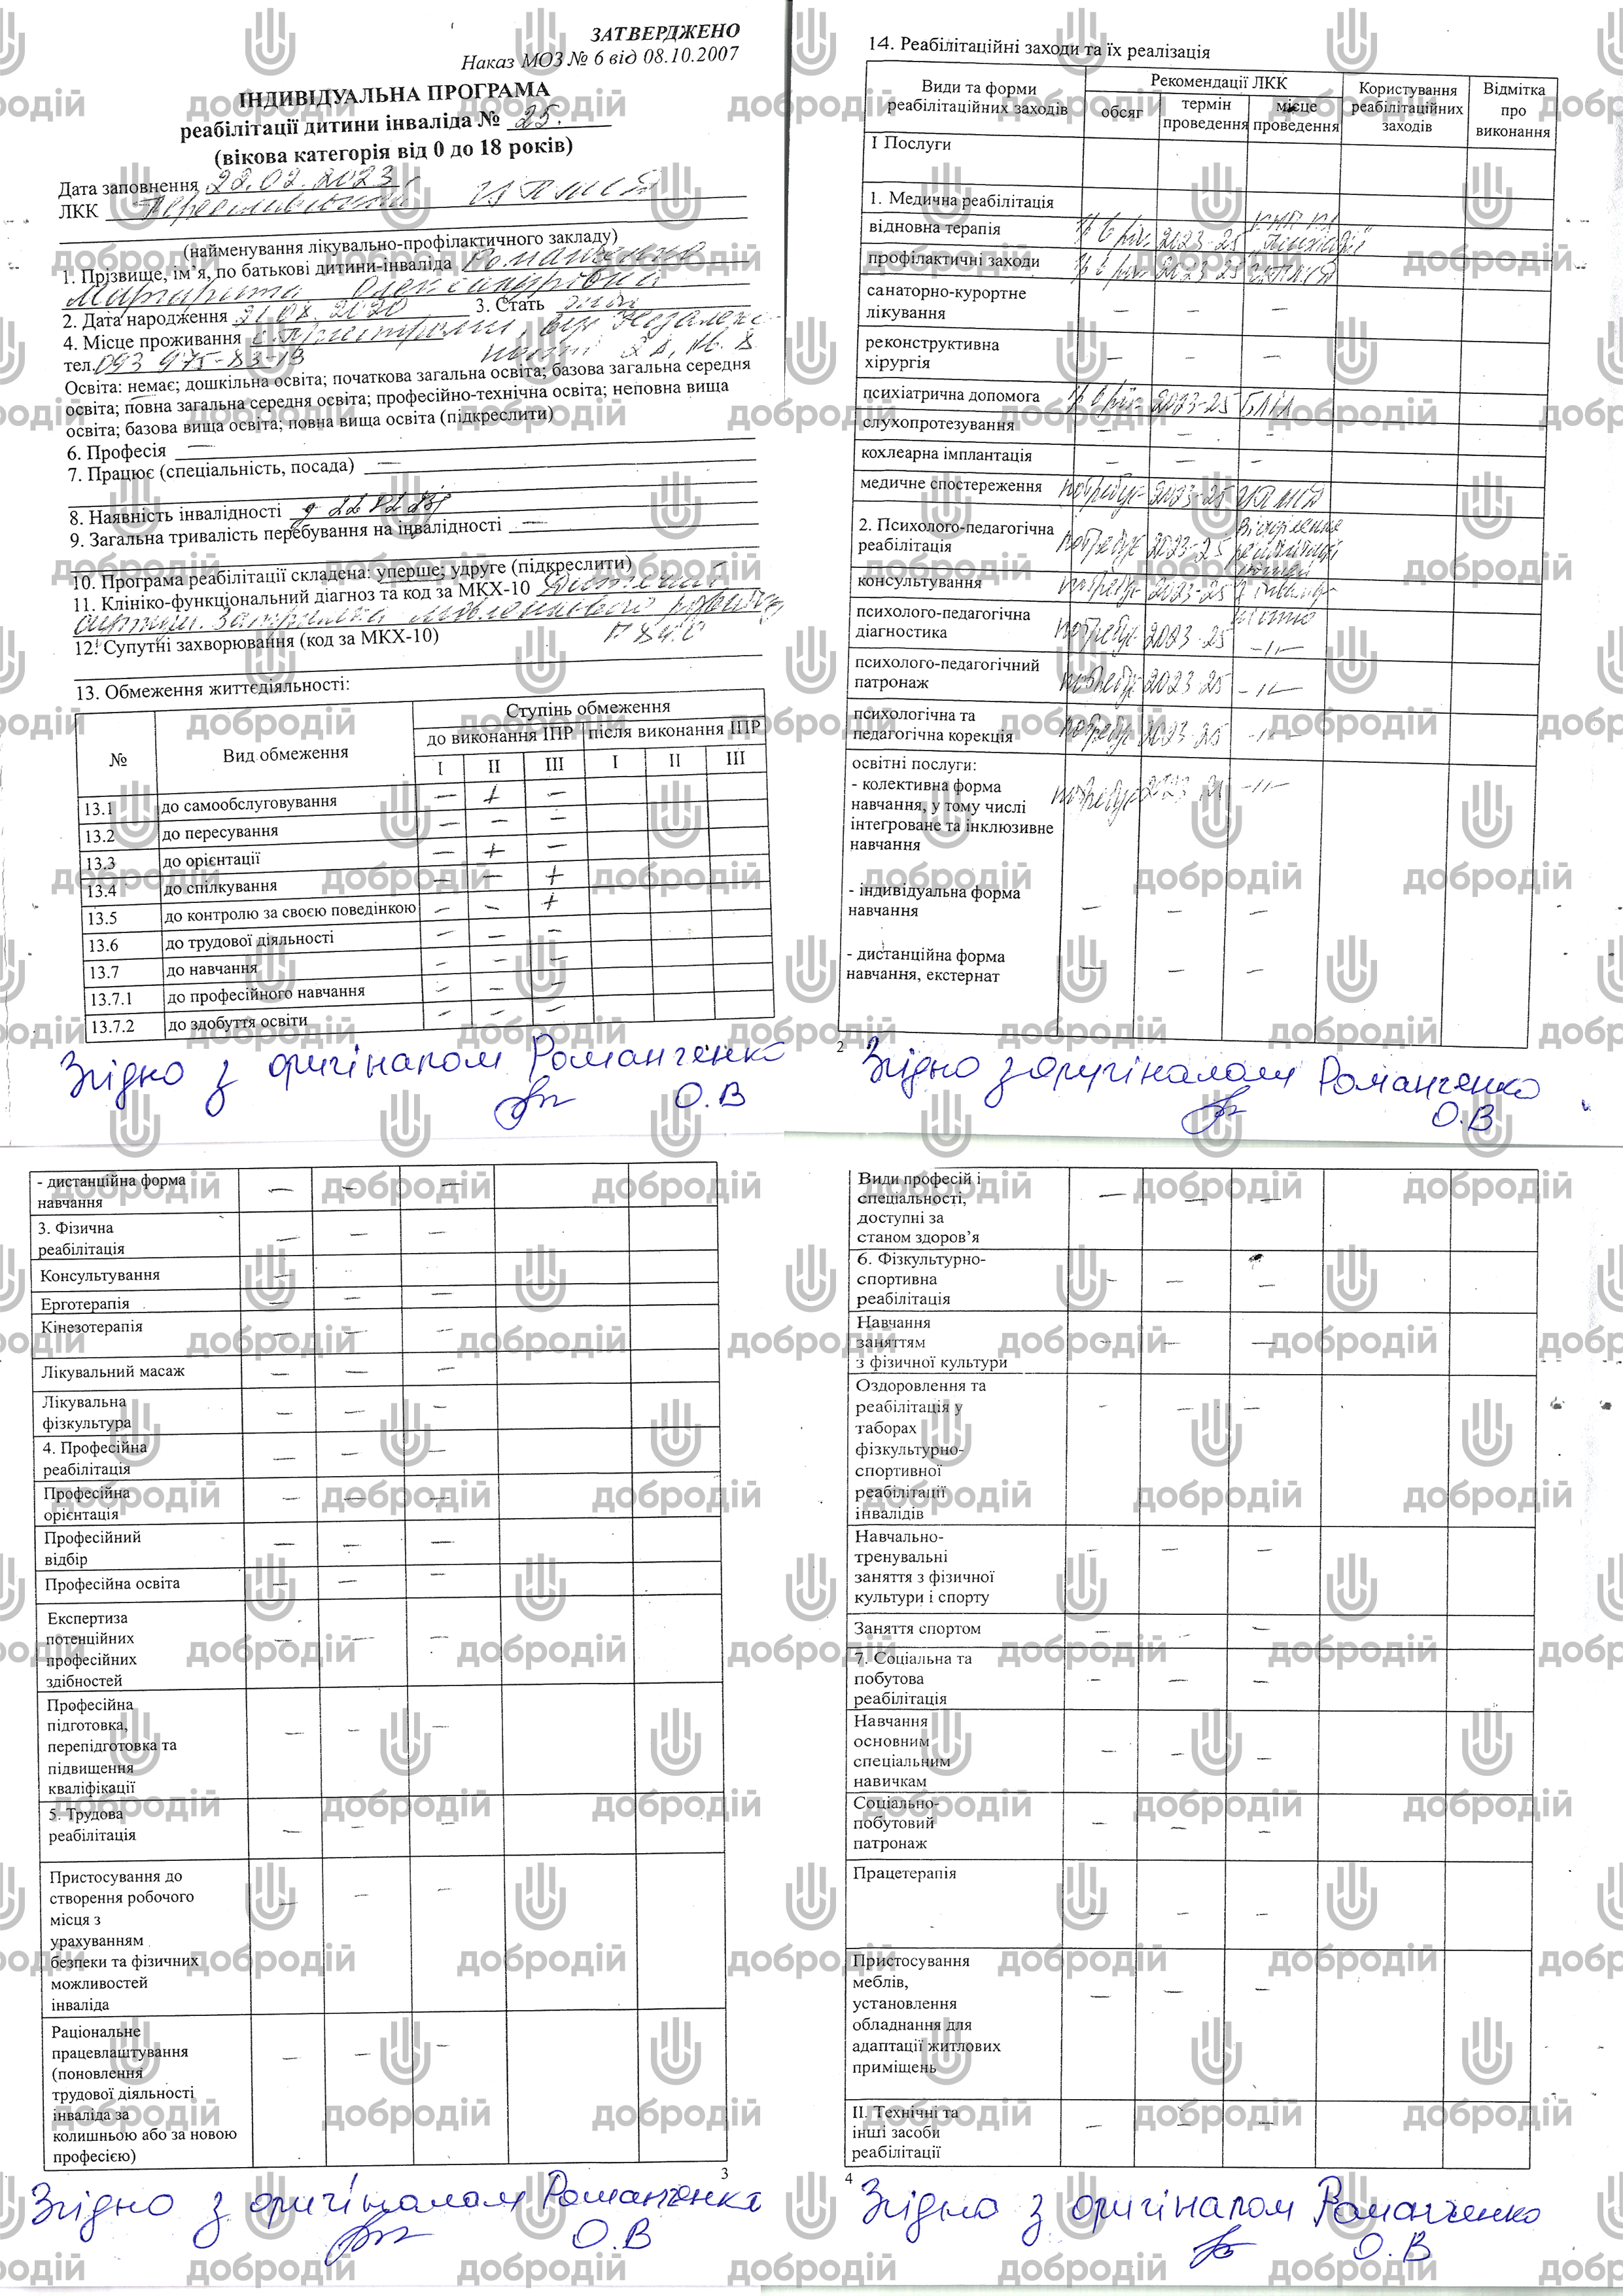 ЗАТВЕРДЖЕНО
Наказ МОЗ № 6 від 08.10.2007
ІНДИВІДУАЛЬНА ПРОГРАМА
реабілітації дитини інваліда № 25.
(вікова категорія від 0 до 18 років)
Дата заповнення 22.02.2023
ЛКК
(найменування лікувально-профілактичного закладу)
1. Прізвище, ім’я, по батькові дитини-інваліда Романченко
Маргарита Олександрівна
2. Дата народження 21.08.2020 3. Стать
4. Місце проживання
тел. 093 975-83-19
Освіта: немає; дошкільна освіта; початкова загальна освіта; базова загальна середня
освіта; повна загальна середня освіта; професійно-технічна освіта; неповна вища
освіта; базова вища освіта; повна вища освіта (підкреслити)
6. Професія —
7. Працює (спеціальність, посада) —
8. Наявність інвалідності
9. Загальна тривалість перебування на інвалідності —
10. Програма реабілітації складена: уперше; удруге (підкреслити)
11. Клініко-функціональний діагноз та код за МКХ-10
Затримка мовленнєвого розвитку
12. Супутні захворювання (код за МКХ-10) F 84.0
13. Обмеження життєдіяльності:
№ Вид обмеження Ступінь обмеження
до виконання ІПР після виконання ІПР
I II III I II III
13.1 до самообслуговування — + —
13.2 до пересування — — —
13.3 до орієнтації — + —
13.4 до спілкування — — +
13.5 до контролю за своєю поведінкою — — +
13.6 до трудової діяльності — — —
13.7 до навчання — — —
13.7.1 до професійного навчання — — —
13.7.2 до здобуття освіти — — —
Згідно з оригіналом Романченко
О.В
14. Реабілітаційні заходи та їх реалізація
Види та форми реабілітаційних заходів
Рекомендації ЛКК
обсяг
термін проведення
місце проведення
Користування реабілітаційних заходів
Відмітка про виконання
I Послуги
1. Медична реабілітація
відновна терапія 2023-25
профілактичні заходи 2023-25
санаторно-курортне
лікування — — —
реконструктивна
хірургія — — —
психіатрична допомога 2023-25
слухопротезування — — —
кохлеарна імплантація — — —
медичне спостереження потребує 2023-25
2. Психолого-педагогічна
реабілітація потребує 2023-25 Відділення
консультування потребує 2023-25
психолого-педагогічна
діагностика потребує 2023-25 -//-
психолого-педагогічний
патронаж потребує 2023-25 -//-
психологічна та
педагогічна корекція потребує 2023-25 -//-
освітні послуги:
- колективна форма потребує -//-
навчання, у тому числі
інтегроване та інклюзивне
навчання
- індивідуальна форма
навчання — — —
- дистанційна форма
навчання, екстернат — — —
2
Згідно з оригіналом Романченко
О.В
- дистанційна форма
навчання — — —
3. Фізична
реабілітація — — —
Консультування —
Ерготерапія — — —
Кінезотерапія — — —
Лікувальний масаж — — —
Лікувальна
фізкультура — — —
4. Професійна
реабілітація — — —
Професійна
орієнтація — — —
Професійний
відбір — — —
Професійна освіта — — —
Експертиза
потенційних
професійних
здібностей — — —
Професійна
підготовка,
перепідготовка та
підвищення
кваліфікації — — —
5. Трудова
реабілітація — — —
Пристосування до
створення робочого
місця з
урахуванням
безпеки та фізичних
можливостей
інваліда — — —
Раціональне
працевлаштування
(поновлення
трудової діяльності
інваліда за
колишньою або за новою
професією) — — —
3
Згідно з оригіналом Романченко
О.В
Види професій і
спеціальності,
доступні за
станом здоров’я — — —
6. Фізкультурно-
спортивна
реабілітація — — —
Навчання
заняттям
з фізичної культури — — —
Оздоровлення та
реабілітація у
таборах
фізкультурно-
спортивної
реабілітації
інвалідів — — —
Навчально-
тренувальні
заняття з фізичної
культури і спорту — — —
Заняття спортом — — —
7. Соціальна та
побутова
реабілітація — — —
Навчання
основним
спеціальним
навичкам — — —
Соціально-
побутовий
патронаж — — —
Працетерапія — — —
Пристосування
меблів,
установлення
обладнання для
адаптації житлових
приміщень — — —
II. Технічні та
інші засоби
реабілітації — — —
4
Згідно з оригіналом Романченко
О.В
добродій